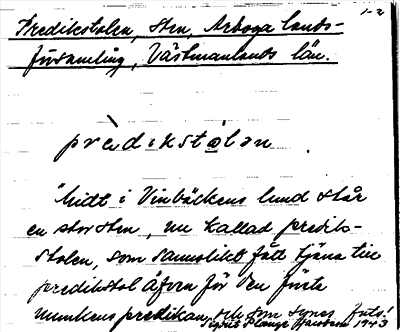 1-2
Predikstolen, sten, Arboga lands-
församling, Västmanlands län.
prèdikstólen
"Midt i Vinbäckens lund står
en stor sten, nu kallad predik-
stolen, som sannolikt fått tjäna till
predikstol äfven för den förste
munkens predikan, och som synes
1943